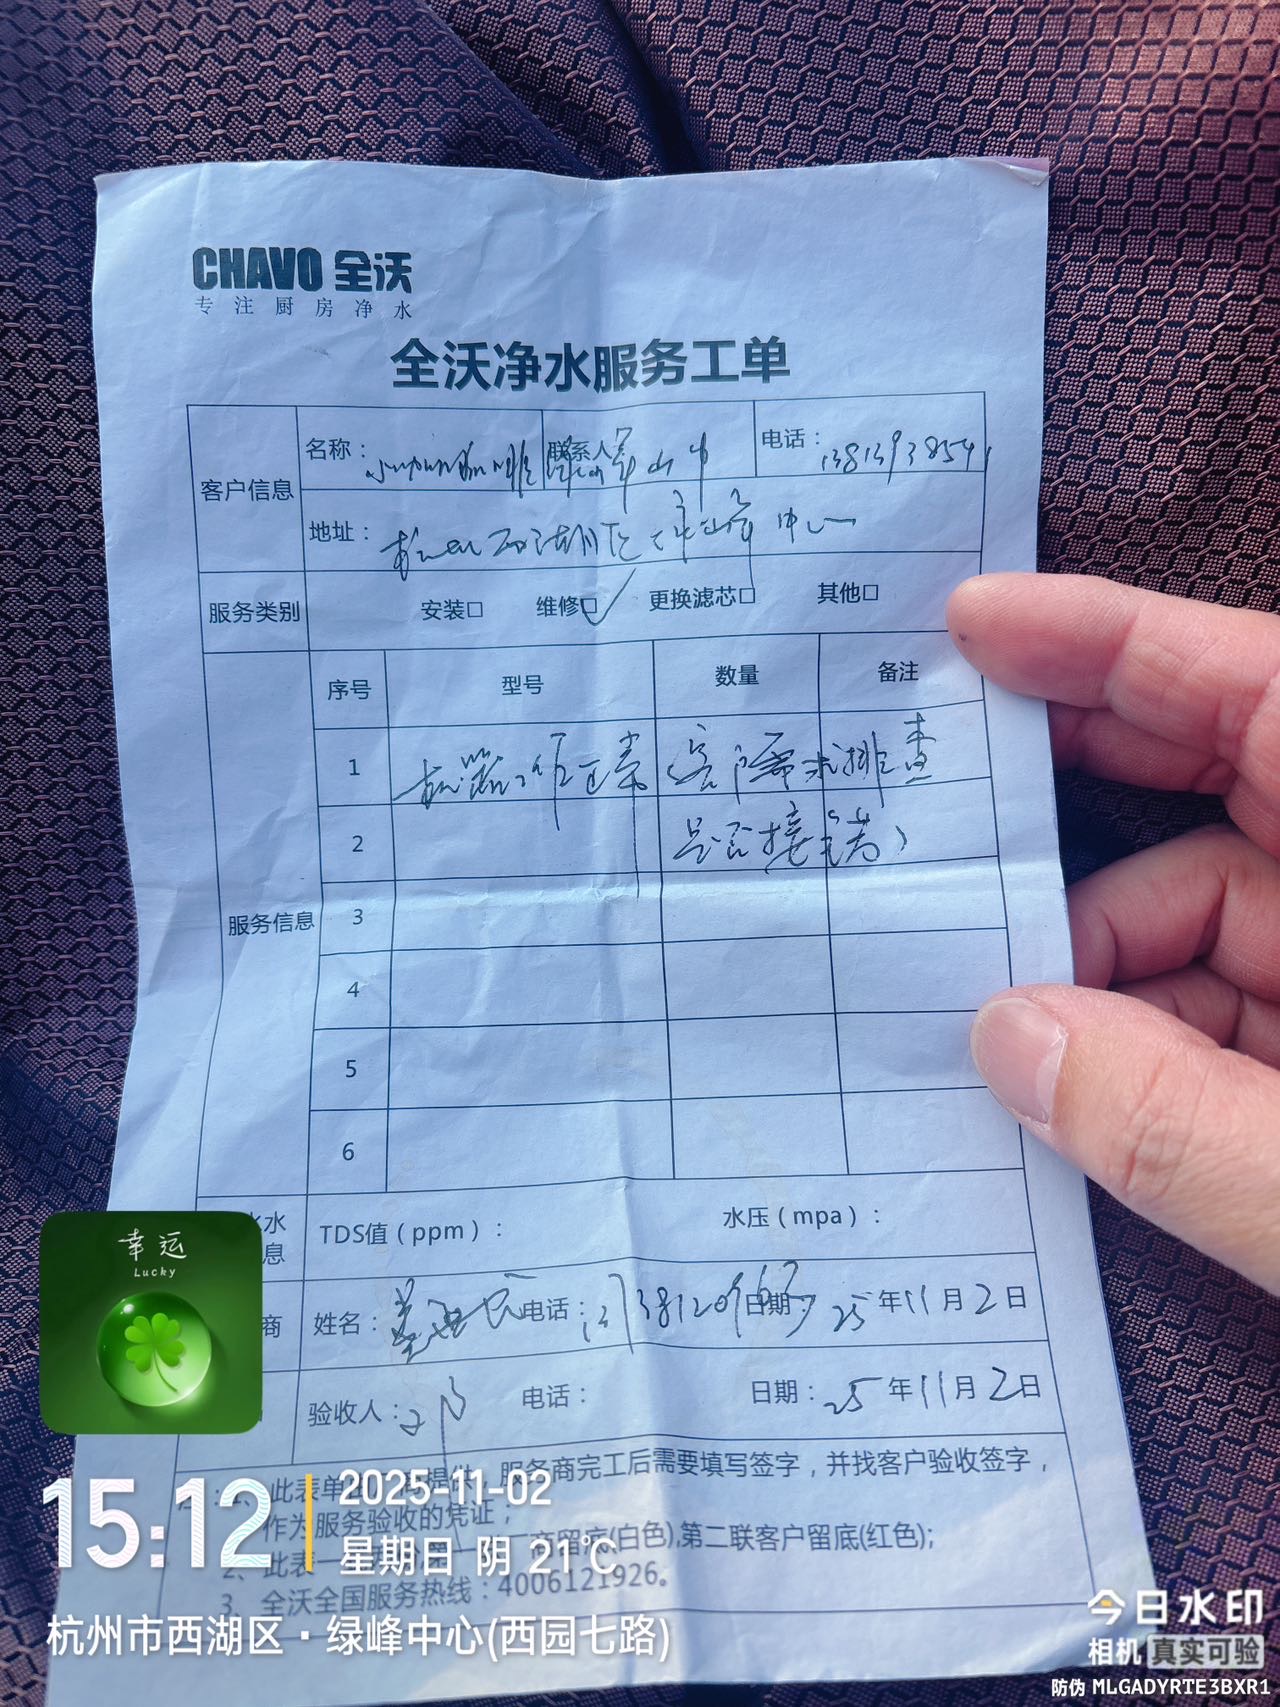 CHAVO 全沃
专注厨房净水
全沃净水服务工单
客户信息
名称： 咖啡
联系人
电话： 1381393854
地址： 杭州西湖区绿峰中心
服务类别 安装□ 维修☑ 更换滤芯□ 其他□
服务信息
序号 型号 数量 备注
1 机器工作正常 客户需求排查
2 是否接错
3
4
5
6
水
息
TDS值（ppm）： 水压（mpa）：
商
姓名： 电话： 日期： 25年11月2日
验收人： 电话： 日期：25年11月2日
1、此表单 提供，服务商完工后需要填写签字，并找客户验收签字，
作为服务验收的凭证；
2、此表一 商留底(白色),第二联客户留底(红色);
3、全沃全国服务热线：4006121926。
幸运
Lucky
15:12
2025-11-02
星期日 阴 21℃
杭州市西湖区·绿峰中心(西园七路)
今日水印
相机 真实可验
防伪 MLGADYRTE3BXR1